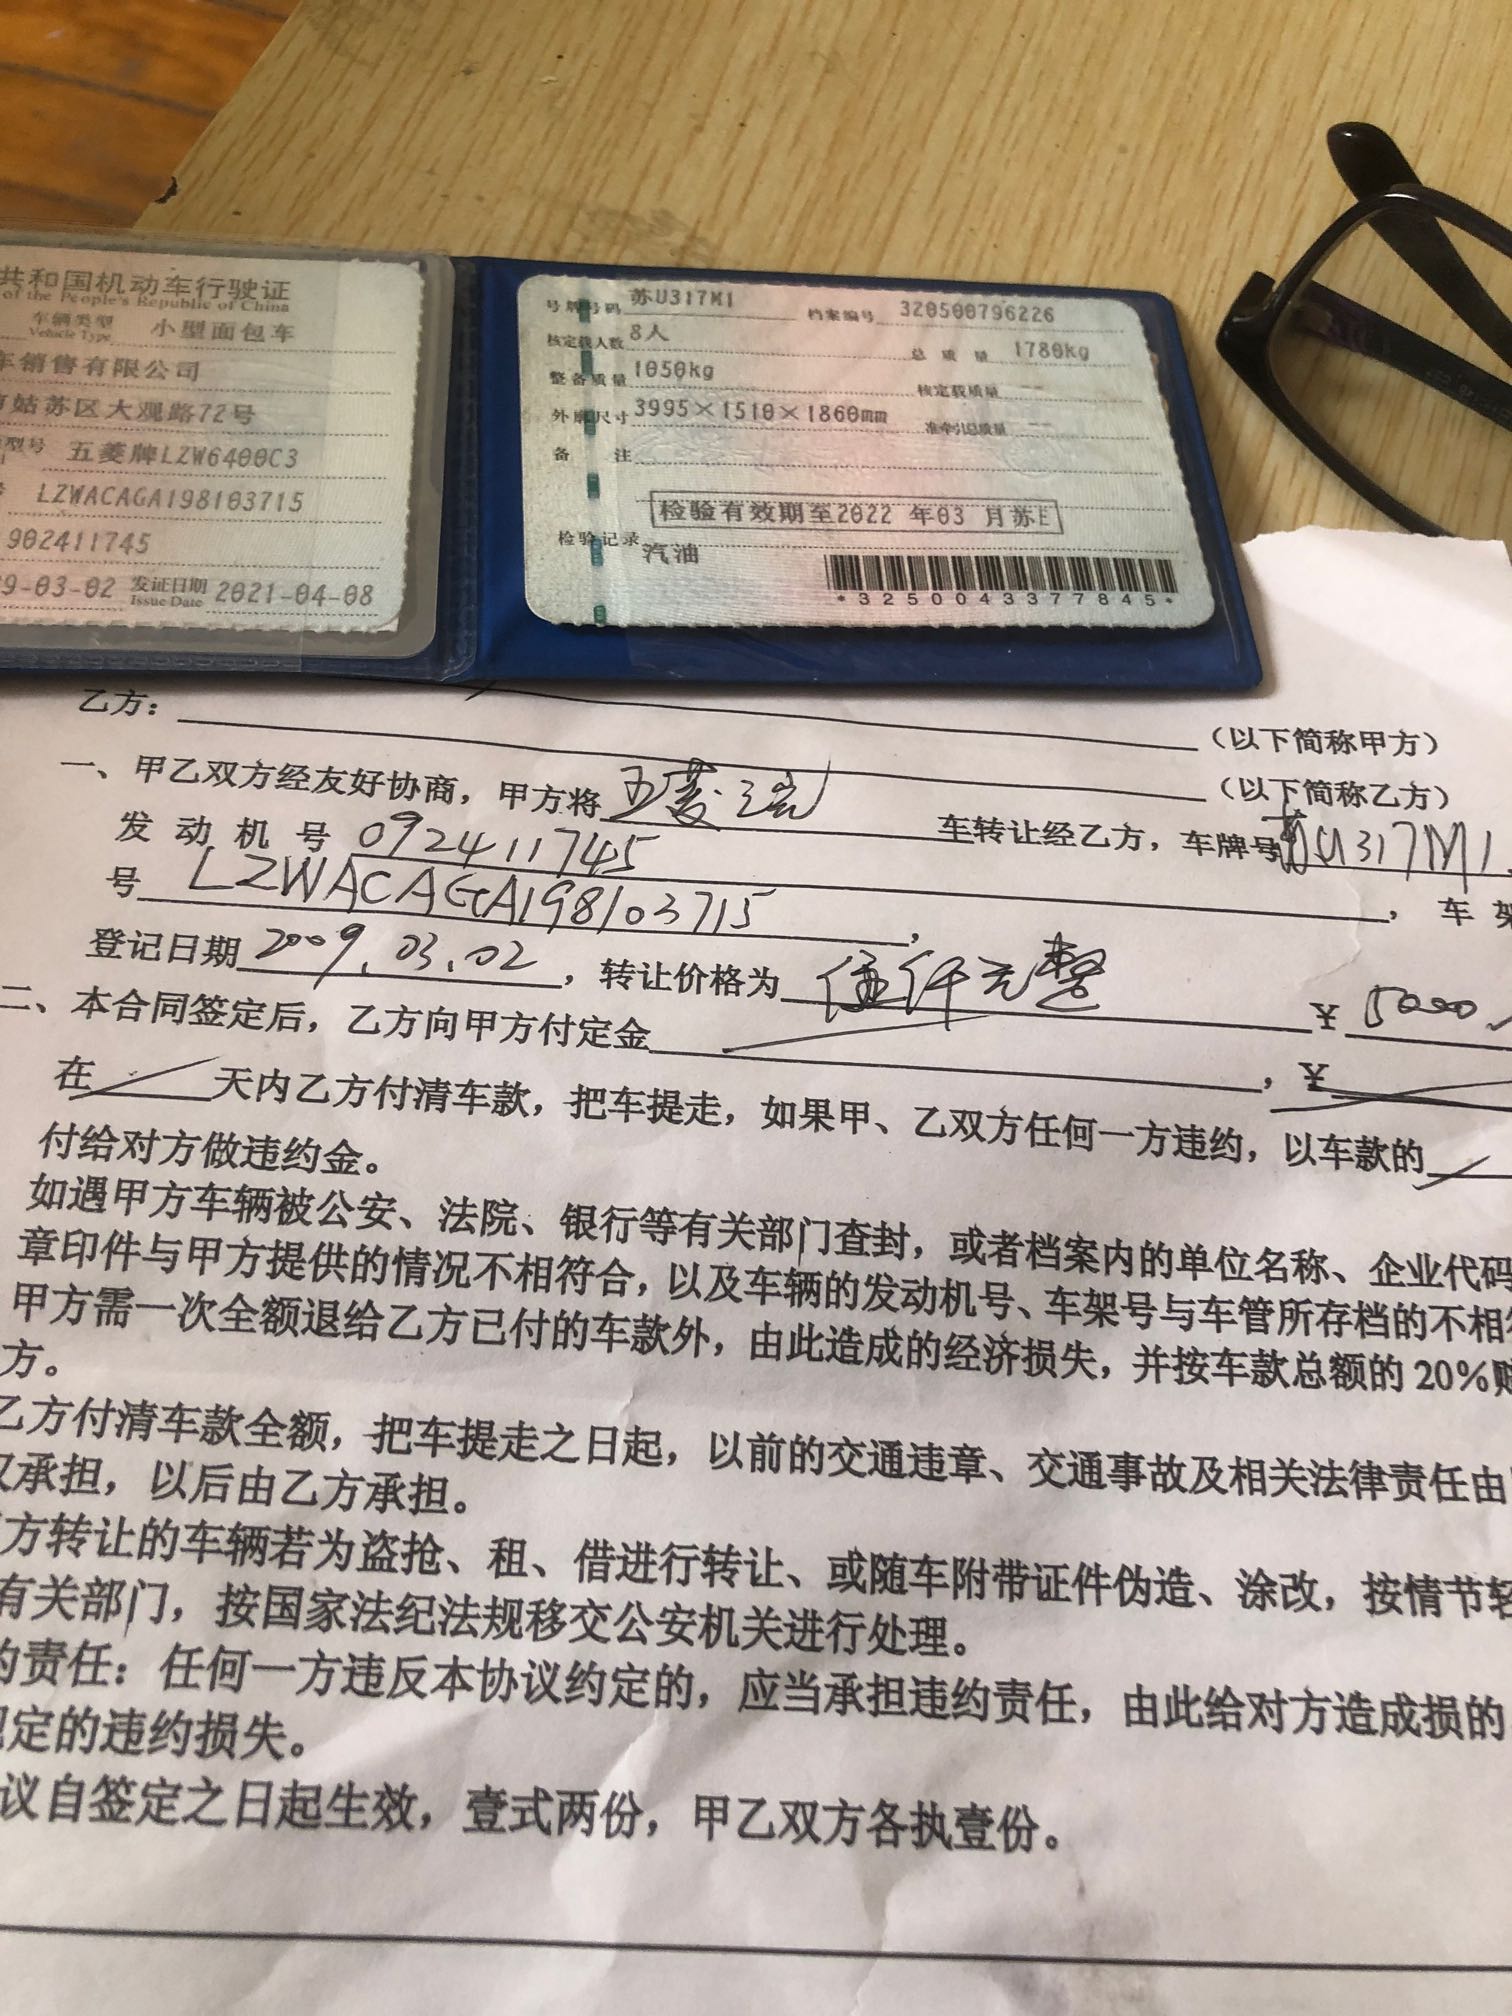 共和国机动车行驶证
of the People's Republic of China
车辆类型 小型面包车
Vehicle Type
车销售有限公司
姑苏区大观路72号
型号 五菱牌LZW6400C3
LZWACAGA198103715
902411745
9-03-02 发证日期 2021-04-08
Issue Date
号牌号码 苏U317M1 档案编号 320500796226
核定载人数 8人 总质量 1780kg
整备质量 1050kg 核定载质量 --
外廓尺寸 3995×1510×1860mm 准牵引总质量 --
备注
检验有效期至2022年03月苏E
检验记录
汽油
*3250043377845*
(以下简称甲方)
乙方: (以下简称乙方)
一、甲乙双方经友好协商，甲方将五菱之光车转让经乙方，车牌号苏U317M1
发动机号 092411745 ，车架
号 LZWACAGA198103715，
登记日期2009.03.02，转让价格为伍仟元整 ¥5000
二、本合同签定后，乙方向甲方付定金 ，¥
在 天内乙方付清车款，把车提走，如果甲、乙双方任何一方违约，以车款的
付给对方做违约金。
如遇甲方车辆被公安、法院、银行等有关部门查封，或者档案内的单位名称、企业代码
章印件与甲方提供的情况不相符合，以及车辆的发动机号、车架号与车管所存档的不相符
甲方需一次全额退给乙方已付的车款外，由此造成的经济损失，并按车款总额的20%赔
方。
乙方付清车款全额，把车提走之日起，以前的交通违章、交通事故及相关法律责任由
承担，以后由乙方承担。
方转让的车辆若为盗抢、租、借进行转让、或随车附带证件伪造、涂改，按情节轻
有关部门，按国家法纪法规移交公安机关进行处理。
的责任：任何一方违反本协议约定的，应当承担违约责任，由此给对方造成损的
定的违约损失。
议自签定之日起生效，壹式两份，甲乙双方各执壹份。